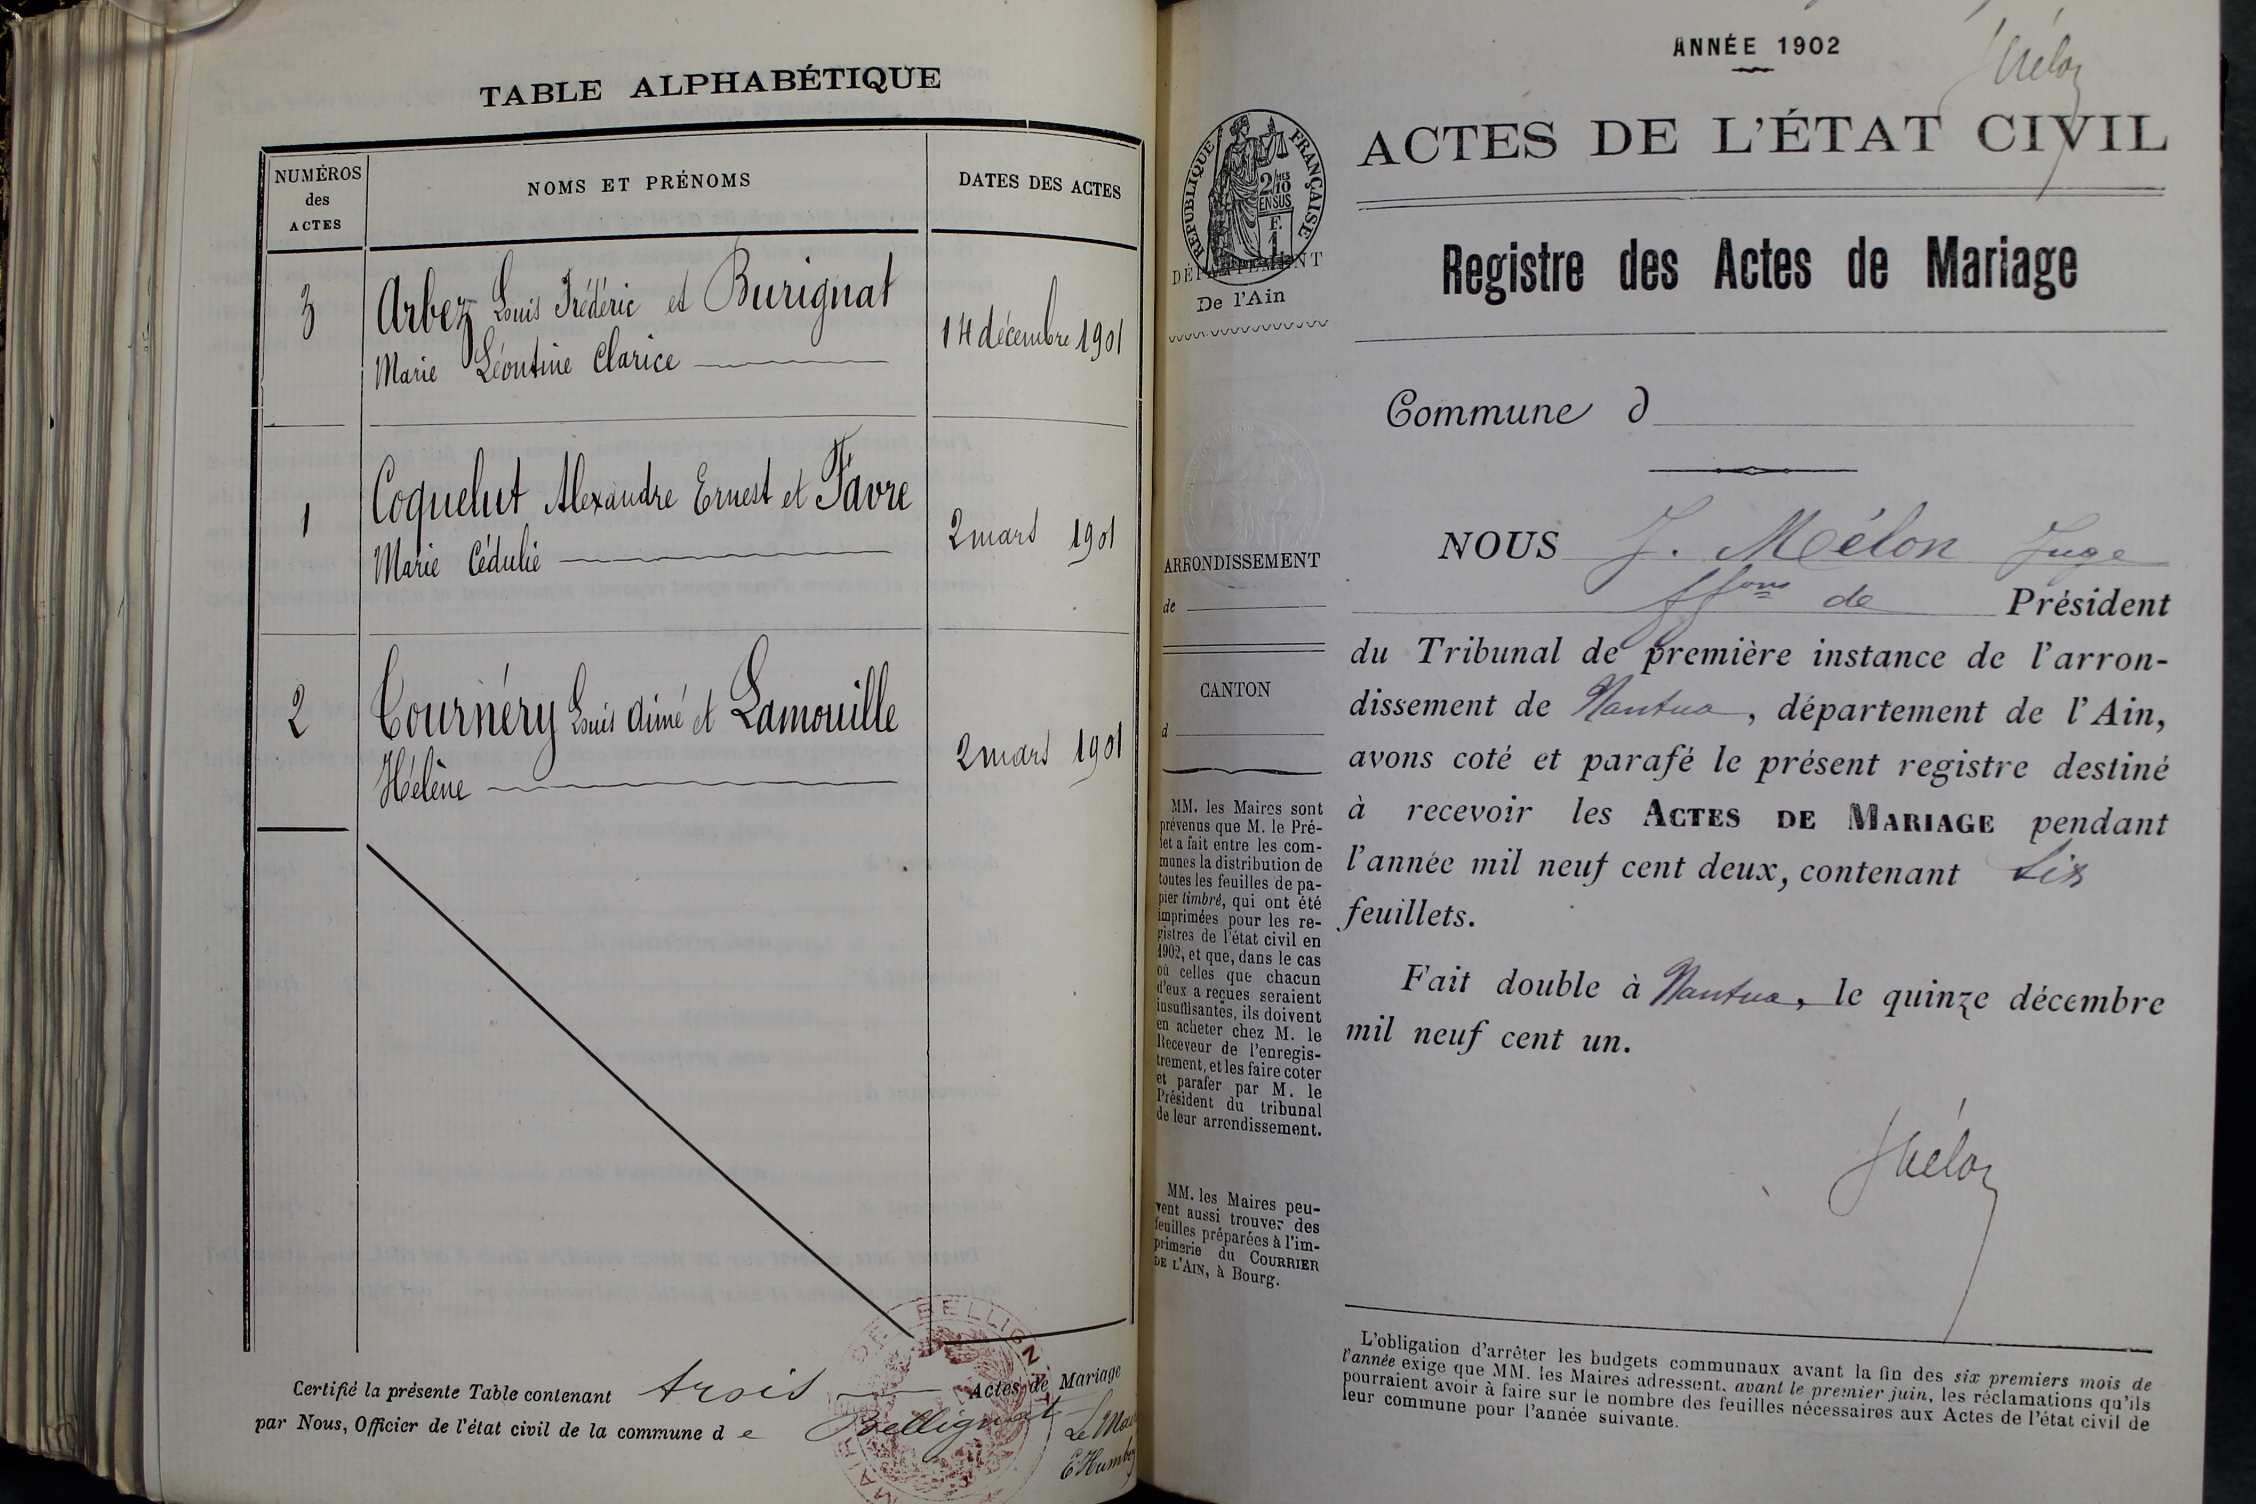 TABLE ALPHABÉTIQUE
NUMÉROS
des
ACTES
NOMS ET PRÉNOMS
DATES DES ACTES
3
Arbez Louis Frédéric et Burignat
Marie Léontine Clarice
14 décembre 1901
1
Coquelut Alexandre Ernest et Favre
Marie Cédulie
2 mars 1901
2
Cournéry Louis Aimé et Lamouille
Hélène
2 mars 1901
Certifié la présente Table contenant trois Actes de Mariage
par Nous, Officier de l'état civil de la commune d e Bellignat
Le Maire
E Humbe
MAIRIE DE BELLIGNAT
ANNÉE 1902
Mélon
ACTES DE L'ÉTAT CIVIL
RÉPUBLIQUE FRANÇAISE
2/10
EN SUS
F.
1
DÉPARTEMENT
De l'Ain
Registre des Actes de Mariage
Commune d
ARRONDISSEMENT
de
CANTON
d
MM. les Maires sont
prévenus que M. le Pré-
fet a fait entre les com-
munes la distribution de
toutes les feuilles de pa-
pier timbré, qui ont été
imprimées pour les re-
gistres de l'état civil en
1902, et que, dans le cas
où celles que chacun
d'eux a reçues seraient
insuffisantes, ils doivent
en acheter chez M. le
Receveur de l'enregis-
trement, et les faire coter
et parafer par M. le
Président du tribunal
de leur arrondissement.
MM. les Maires peu-
vent aussi trouver des
feuilles préparées à l'im-
primerie du COURRIER
DE L'AIN, à Bourg.
NOUS J. Mélon Juge
ffons de Président
du Tribunal de première instance de l'arron-
dissement de Nantua, département de l'Ain,
avons coté et parafé le présent registre destiné
à recevoir les ACTES DE MARIAGE pendant
l'année mil neuf cent deux, contenant six
feuillets.
Fait double à Nantua, le quinze décembre
mil neuf cent un.
Mélon
L'obligation d'arrêter les budgets communaux avant la fin des six premiers mois de
l'année exige que MM. les Maires adressent, avant le premier juin, les réclamations qu'ils
pourraient avoir à faire sur le nombre des feuilles nécessaires aux Actes de l'état civil de
leur commune pour l'année suivante.